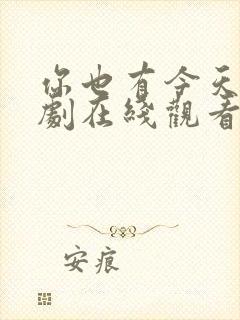 你也有今天
劇在綫觀看
安痕